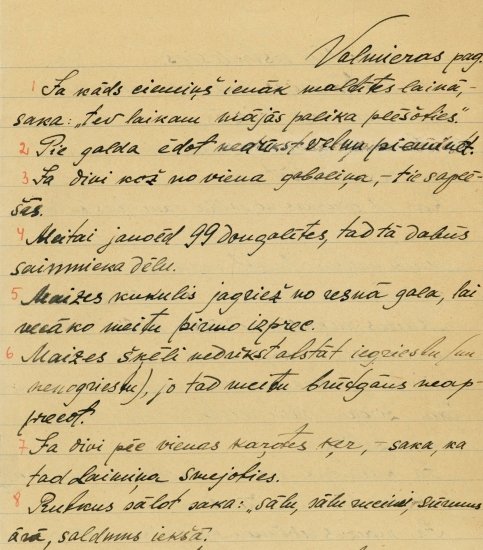 Valmieras pag.
1 Ja kāds ciemiņš ienāk maltītes laikā, –
saka: „tev laikam mājās palika plēšoties.”
2 Pie galda ēdot nedrīkst velnu pieminēt.
3 Ja divi kož no viena gabaliņa, – tie saplē-
šas.
4 Meitai jānoēd 99 dongalītes, tad tā dabūs
saimnieka dēlu.
5 Maizes kukulis jāgriež no resnā gala, lai
vecāko meitu pirmo izprec.
6 Maizes šķēli nedrīkst atstāt iegrieztu (un
nenogrieztu), jo tad meitu brūtgāns neap-
precot.
7 Ja divi pēc vienas karotes ķer, – saka, ka
tad Laimiņa smejoties.
8 Putkus sālot saka: „sālu, sālu meini, sūrums
ārā, saldums iekšā.